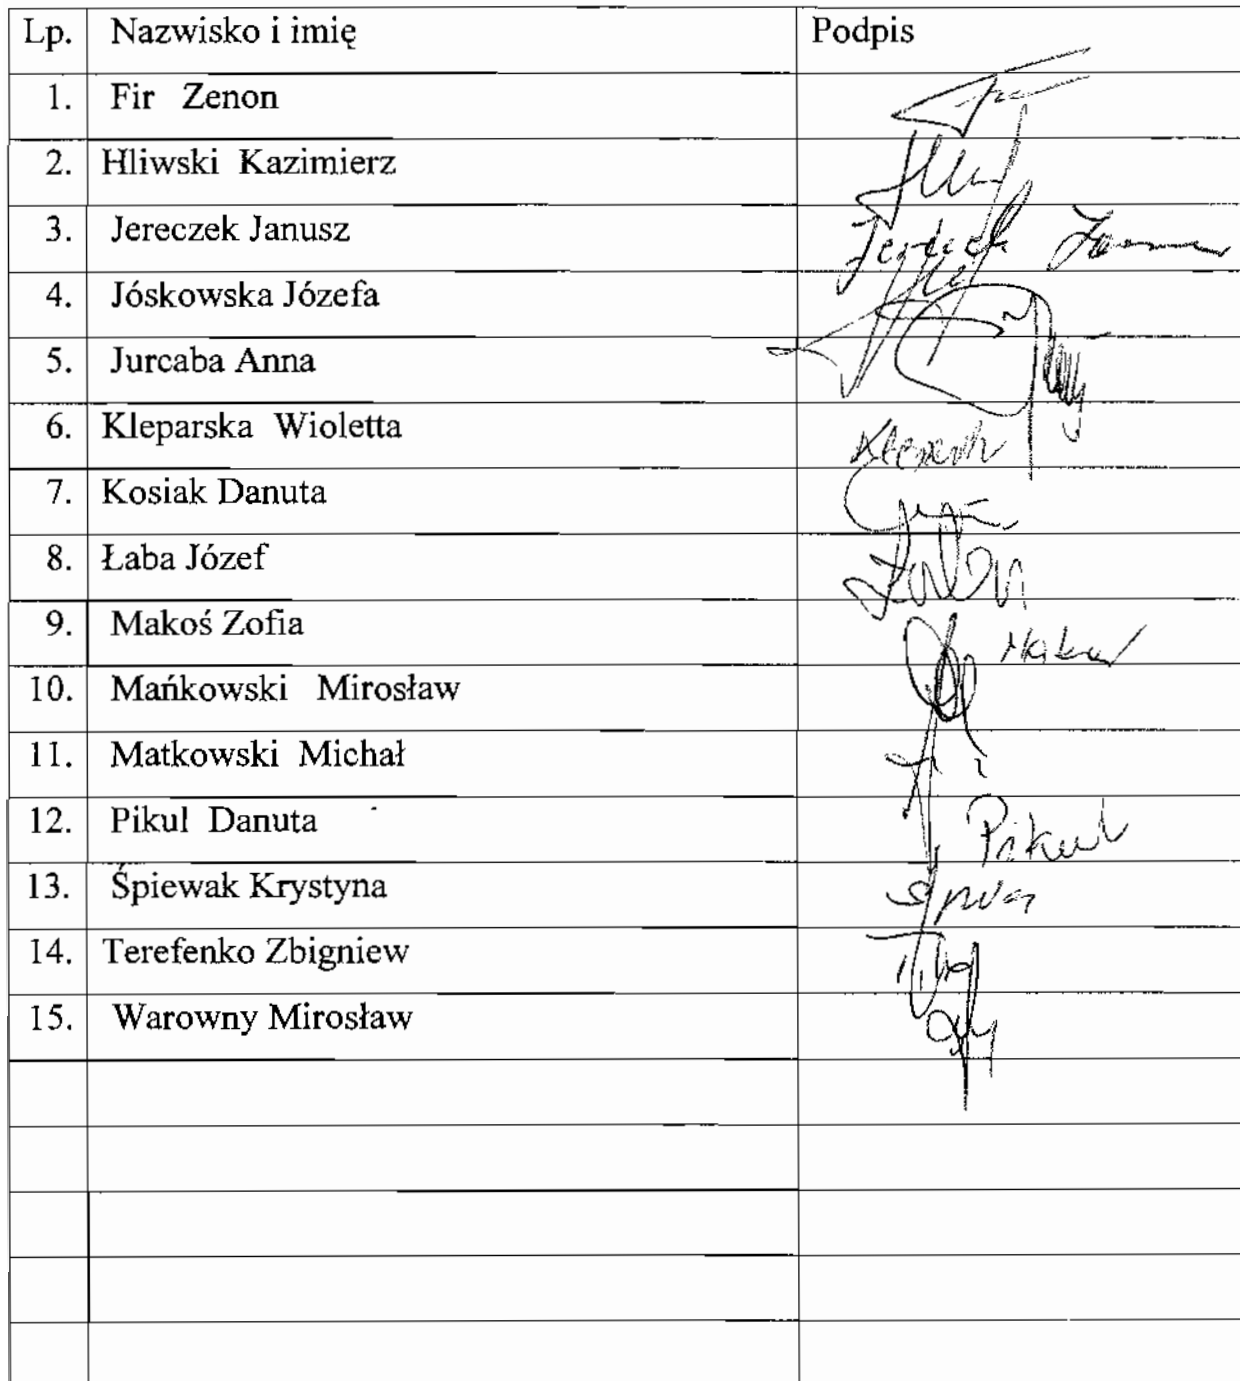 Lp. Nazwisko i imię Podpis
1. Fir Zenon
2. Hliwski Kazimierz
3. Jereczek Janusz
4. Jóskowska Józefa
5. Jurcaba Anna
6. Kleparska Wioletta
7. Kosiak Danuta
8. Łaba Józef
9. Makoś Zofia
10. Mańkowski Mirosław
11. Matkowski Michał
12. Pikul Danuta Pikul
13. Śpiewak Krystyna
14. Terefenko Zbigniew
15. Warowny Mirosław